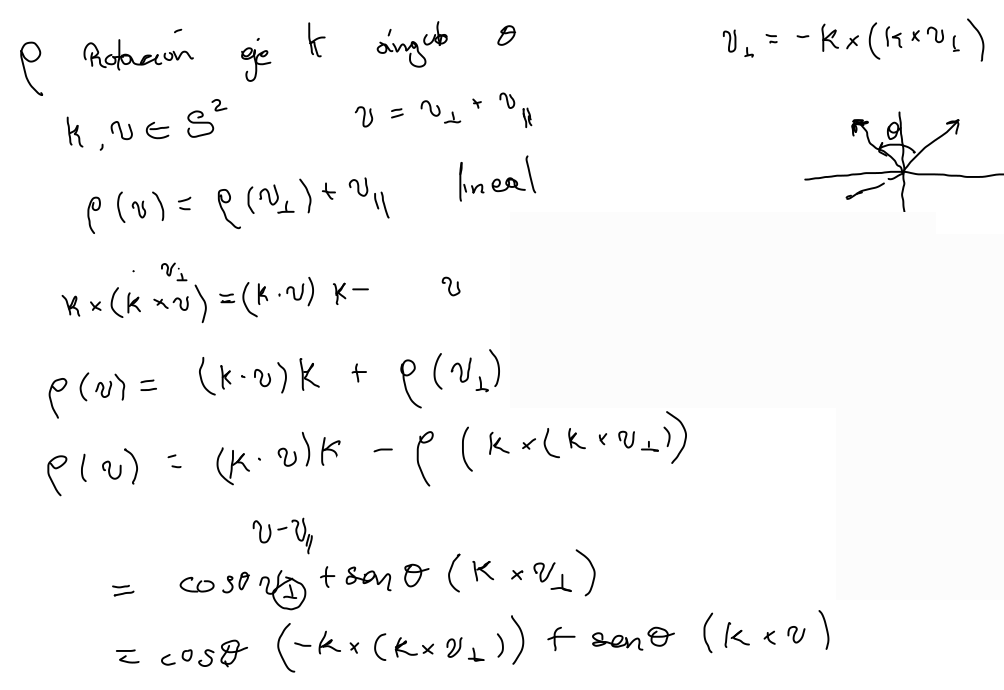 ρ Rotación eje k ángulo θ
v⊥ = -k×(k×v⊥)
k, v ∈ S² v = v⊥ + v∥
θ
ρ(v) = ρ(v⊥) + v∥ lineal
v⊥
k×(k×v) = (k·v) k - v
ρ(v) = (k·v)k + ρ(v⊥)
ρ(v) = (k·v)k - ρ(k×(k×v⊥))
v-v∥
= cosθ v⊥ + senθ (k×v⊥)
= cosθ (-k×(k×v⊥)) + senθ (k×v)